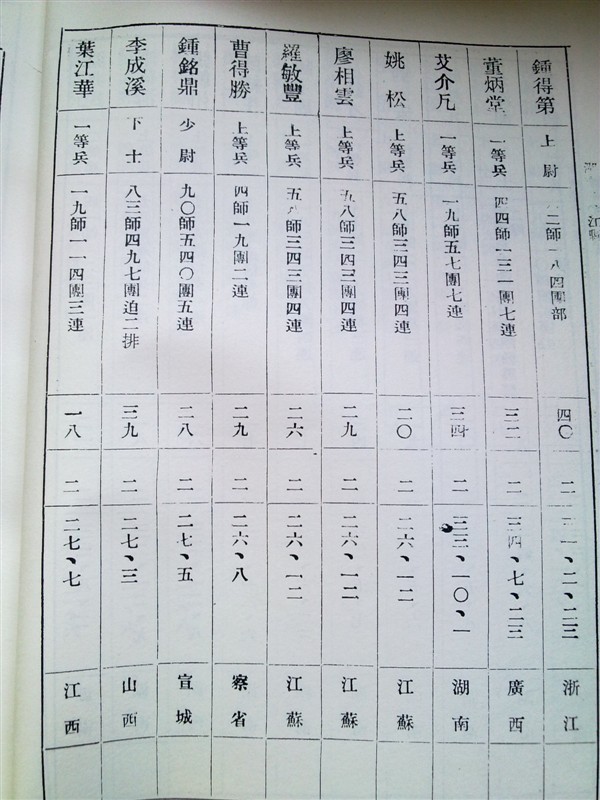 鍾得第 上尉 二師一八四團部 四〇 二 一、二、二三 浙江
董炳堂 一等兵 四四師一三一團七連 三二 二 三四、七、二三 廣西
艾介凡 一等兵 一九師五七團七連 三四 二 三三、一〇、一 湖南
姚松 上等兵 五八師三四三團四連 二〇 二 二六、一二 江蘇
廖相雲 上等兵 五八師三四三團四連 二九 二 二六、一二 江蘇
羅敏豐 上等兵 五八師三四三團四連 二六 二 二六、一二 江蘇
曹得勝 上等兵 四師一九團二連 二九 二 二六、八 察省
鍾銘鼎 少尉 九〇師五四〇團五連 二八 二 二七、五 宣城
李成溪 下士 八三師四九七團迫二排 三九 二 二七、三 山西
葉江華 一等兵 一九師一一四團三連 一八 二 二七、七 江西